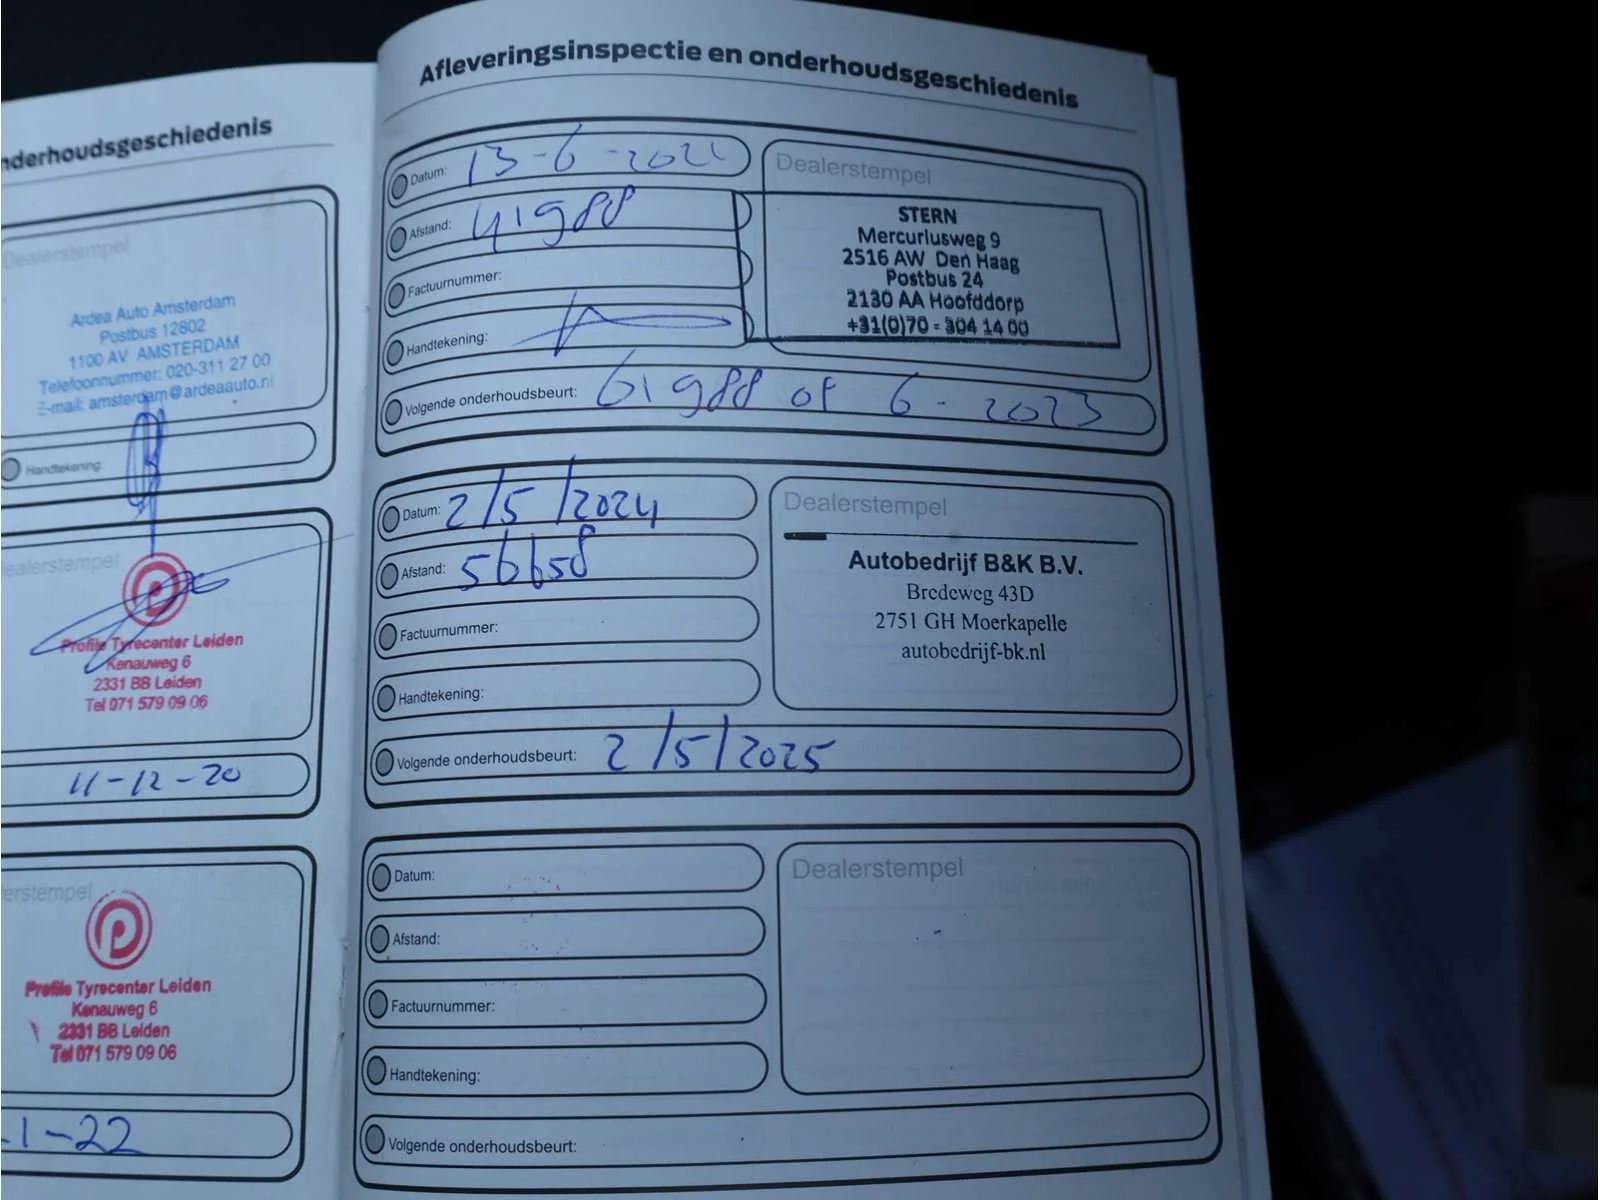 nderhoudsgeschiedenis
Dealerstempel
Ardea Auto Amsterdam
Postbus 12802
1100 AV AMSTERDAM
Telefoonnummer: 020-311 27 00
E-mail: amsterdam@ardeaauto.nl
Handtekening:
ealerstempel
Profile Tyrecenter Leiden
Kenauweg 6
2331 BB Leiden
Tel 071 579 09 06
11-12-20
erstempel
Profile Tyrecenter Leiden
Kenauweg 6
2331 BB Leiden
Tel 071 579 09 06
-1-22
Afleveringsinspectie en onderhoudsgeschiedenis
Datum: 13-6-202
Afstand: 41988
Factuurnummer:
Handtekening:
Volgende onderhoudsbeurt: 61988 of 6-2023
Dealerstempel
STERN
Mercuriusweg 9
2516 AW Den Haag
Postbus 24
2130 AA Hoofddorp
+31(0)70 - 304 14 00
Datum: 2/5/2024
Afstand: 56658
Factuurnummer:
Handtekening:
Volgende onderhoudsbeurt: 2/5/2025
Dealerstempel
Autobedrijf B&K B.V.
Bredeweg 43D
2751 GH Moerkapelle
autobedrijf-bk.nl
Datum:
Afstand:
Factuurnummer:
Handtekening:
Volgende onderhoudsbeurt:
Dealerstempel